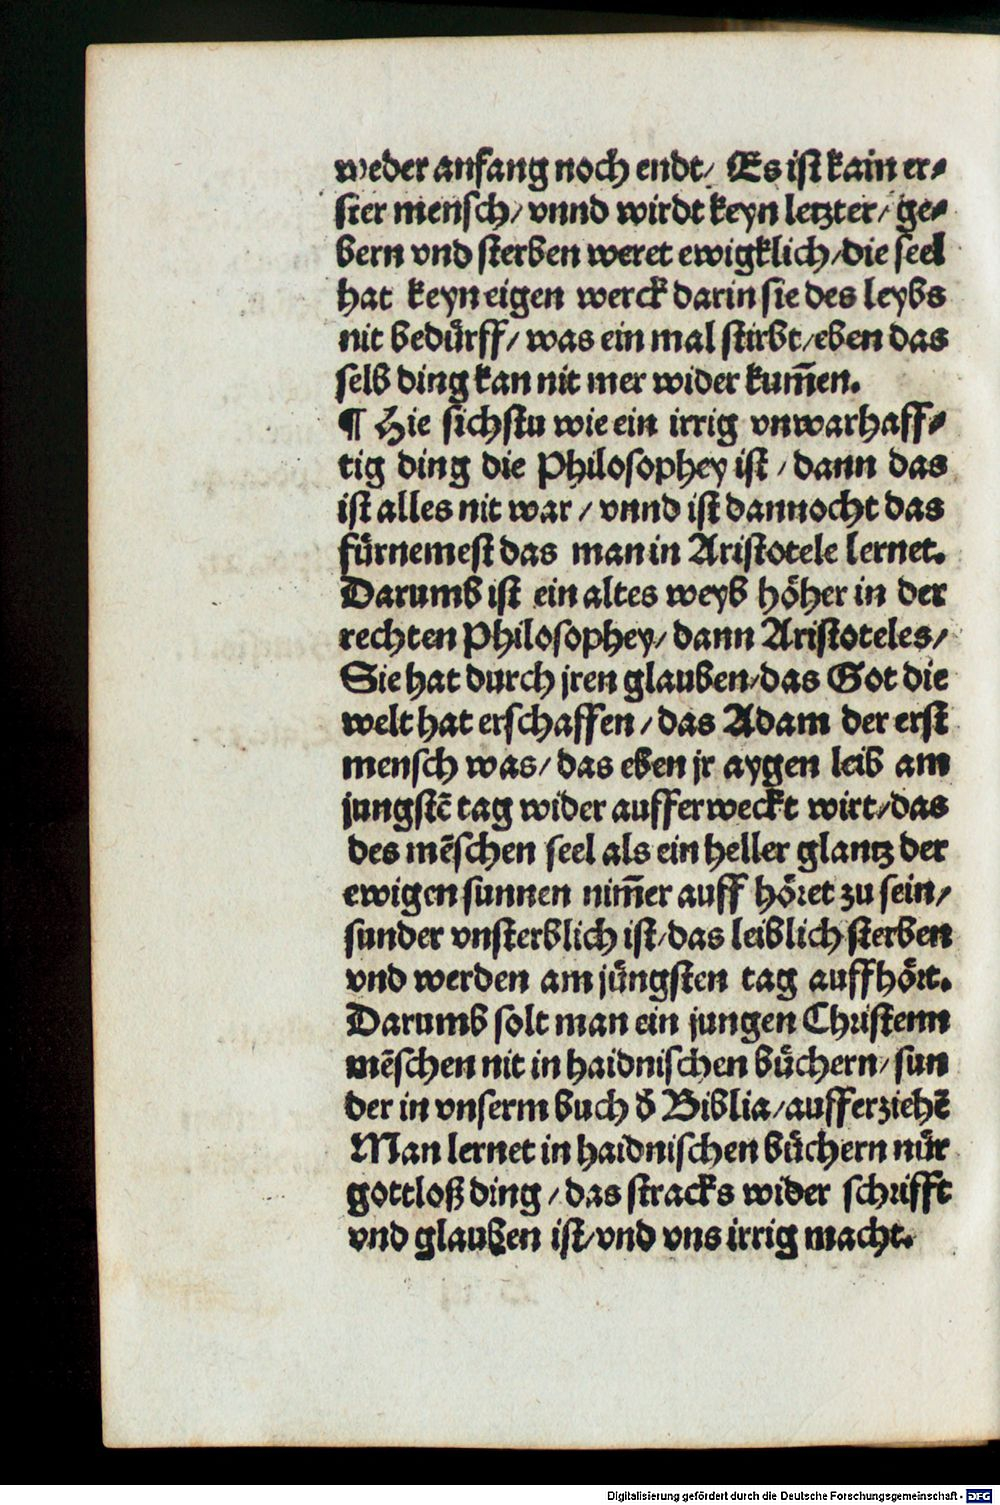 weder anfang noch endt/ Es ist kain er⸗
ster mensch/ vnnd wirdt keyn letzter/ ge⸗
bern vnd sterben weret ewigklich/die seel
hat keyn eigen werck darin sie des leybs
nit bedürff/ was ein mal stirbt/eben das
selb ding kan nit mer wider kum̅en.
¶ Hie sichstu wie ein irrig vnwarhaff⸗
tig ding die Philosophey ist / dann das
ist alles nit war / vnnd ist dannocht das
fürnemest das man in Aristotele lernet.
Darumb ist ein altes weyb höher in der
rechten Philosophey/ dann Aristoteles/
Sie hat durch jren glauben/das Got die
welt hat erschaffen/ das Adam der erst
mensch was/ das eben jr aygen leib am
jungstē tag wider aufferweckt wirt/das
des mēschen seel als ein heller glantz der
ewigen sunnen nim̅er auff höret zu sein/
sunder vnsterblich ist/das leiblich sterben
vnd werden am jüngsten tag auffhört.
Darumb solt man ein jungen Christenn
mēschen nit in haidnischen büchern/ sun
der in vnserm buch d̓ Biblia/aufferziehē
Man lernet in haidnischen büchern nür
gottloß ding / das stracks wider schrifft
vnd glauben ist/vnd vns irrig macht.
Digitalisierung gefördert durch die Deutsche Forschungsgemeinschaft - DFG